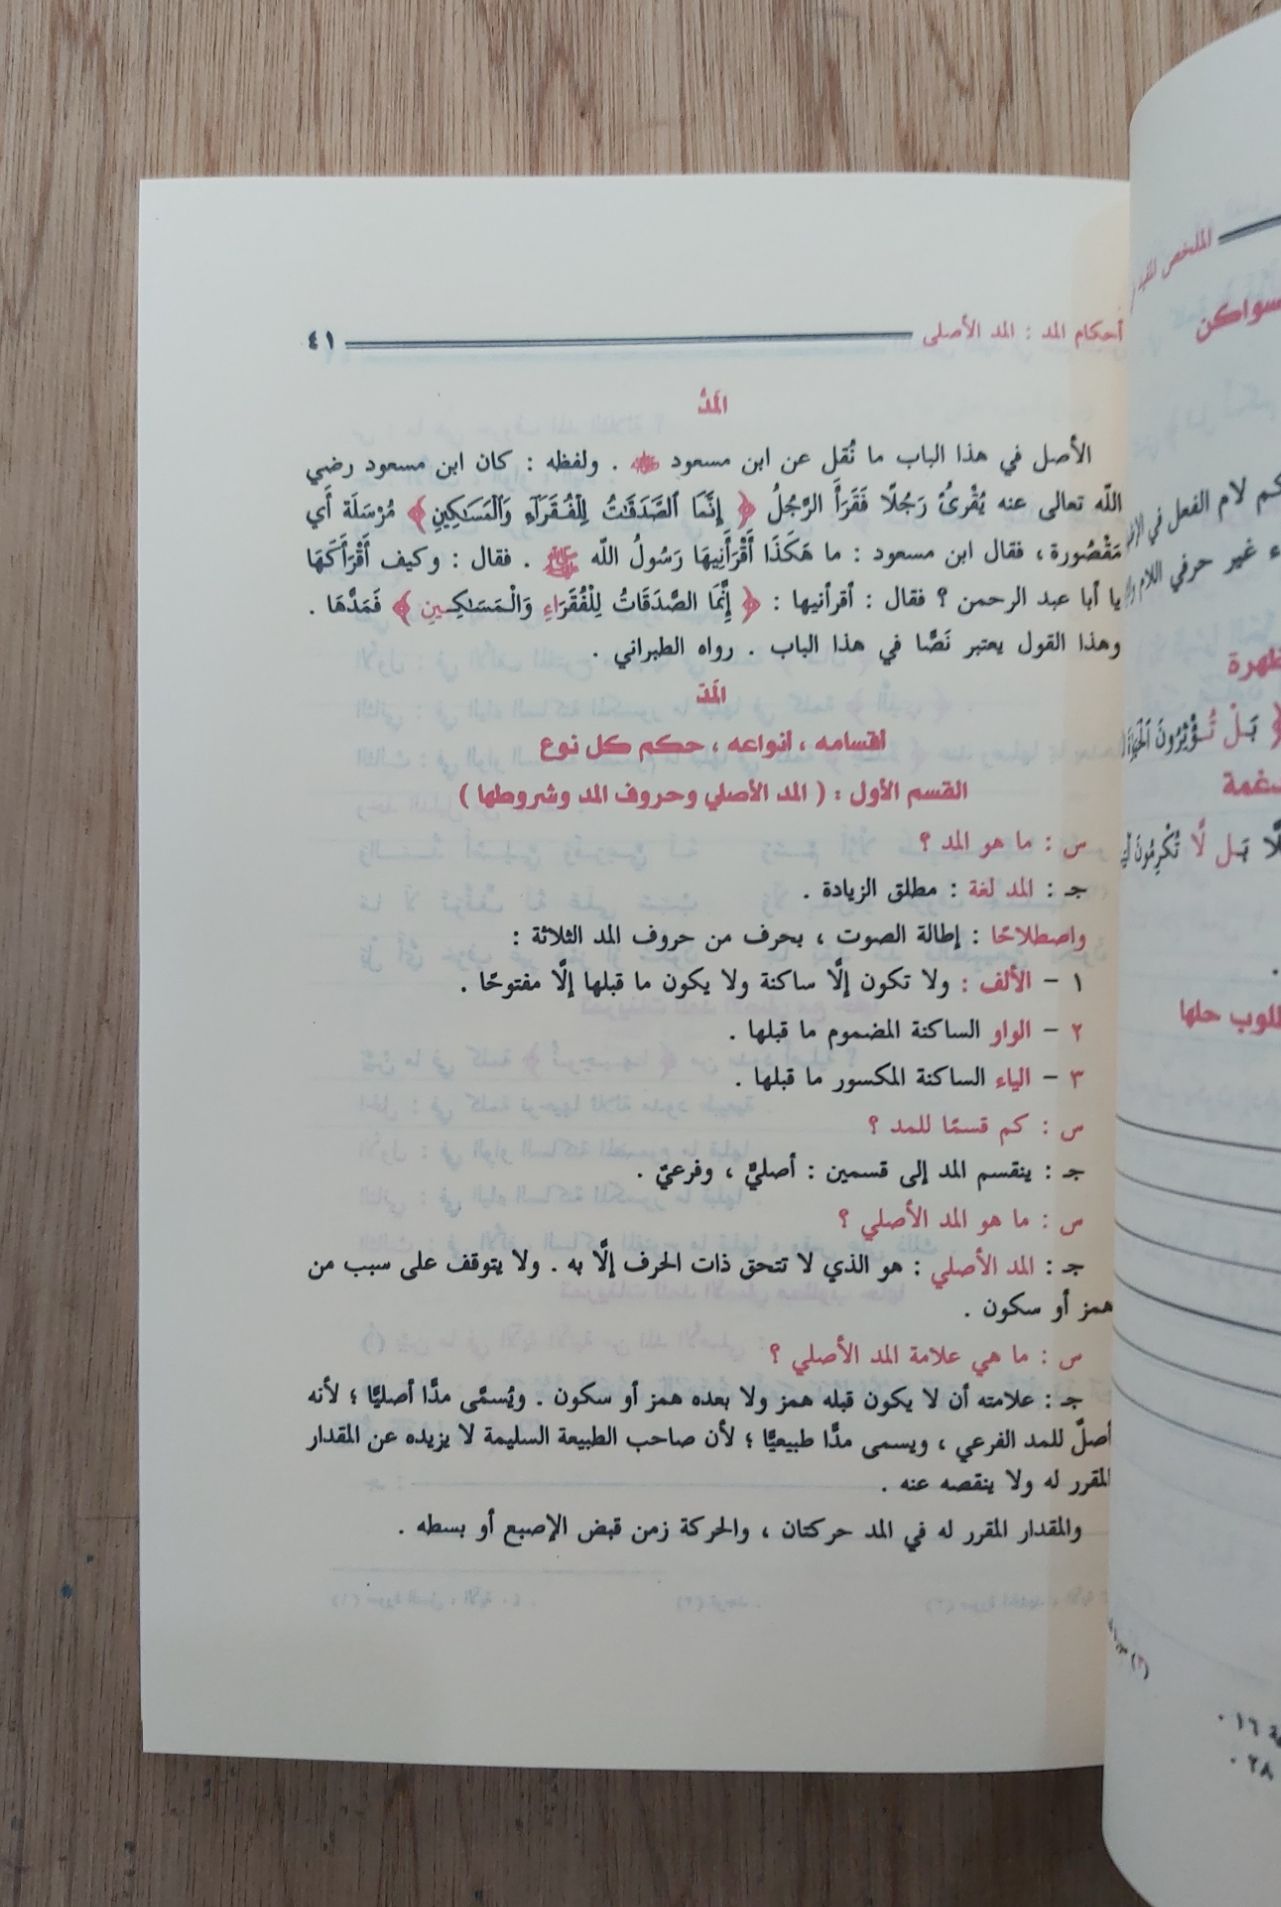 أحكام المد : المد الأصلى
٤١
المَدْ
الأصل في هذا الباب ما نُقل عن ابن مسعود ﷺ . ولفظه : كان ابن مسعود رضي
اللّه تعالى عنه يُقْرِئُ رَجُلًا فَقَرَأَ الرَّجُلُ ﴿ إِنَّمَا ٱلصَّدَقَٰتُ لِلْفُقَرَآءِ وَٱلْمَسَٰكِينِ﴾ مُرْسَلَة أَي
مَقْصُورة ، فقال ابن مسعود : ما هَكَذَا أَقْرَأَنِيهَا رَسُولُ اللّه ﷺ . فقال : وكيف أَقْرَأَكَهَا
يا أبا عبد الرحمن ؟ فقال : أقرأنيها : ﴿ إِنَّمَا الصَّدَقَاتُ لِلْفُقَرَاءِ وَالْمَسَاكِينِ ﴾ فَمَدَّهَا .
وهذا القول يعتبر نَصًّا في هذا الباب . رواه الطبراني .
المَدّ
أقسامه ، أنواعه ، حكم كل نوع
القسم الأول : ( المد الأصلي وحروف المد وشروطها )
س : ما هو المد ؟
جـ : المد لغة : مطلق الزيادة .
واصطلاحًا : إطالة الصوت ، بحرف من حروف المد الثلاثة :
١ – الألف : ولا تكون إلَّا ساكنة ولا يكون ما قبلها إلَّا مفتوحًا .
٢ – الواو الساكنة المضموم ما قبلها .
٣ – الياء الساكنة المكسور ما قبلها .
س : كم قسمًا للمد ؟
جـ : ينقسم المد إلى قسمين : أصليٌّ ، وفرعيّ .
س : ما هو المد الأصلي ؟
جـ : المد الأصلي : هو الذي لا تتحق ذات الحرف إلَّا به . ولا يتوقف على سبب من
همز أو سكون .
س : ما هي علامة المد الأصلي ؟
جـ : علامته أن لا يكون قبله همز ولا بعده همز أو سكون . ويُسمَّى مدًّا أصليًّا ؛ لأنه
أصلٌ للمد الفرعي ، ويسمى مدًّا طبيعيًّا ؛ لأن صاحب الطبيعة السليمة لا يزيده عن المقدار
المقرر له ولا ينقصه عنه .
والمقدار المقرر له في المد حركتان ، والحركة زمن قبض الإصبع أو بسطه .
الملخص المفيد
سواكن
كم لام الفعل في
ء غير حرفي اللام
ظهرة
﴿ بَلْ تُؤْثِرُونَ
دغمة
لَّا بَل لَّا تُكْرِمُونَ
طلوب حلها
١٦ .
٢٨ .